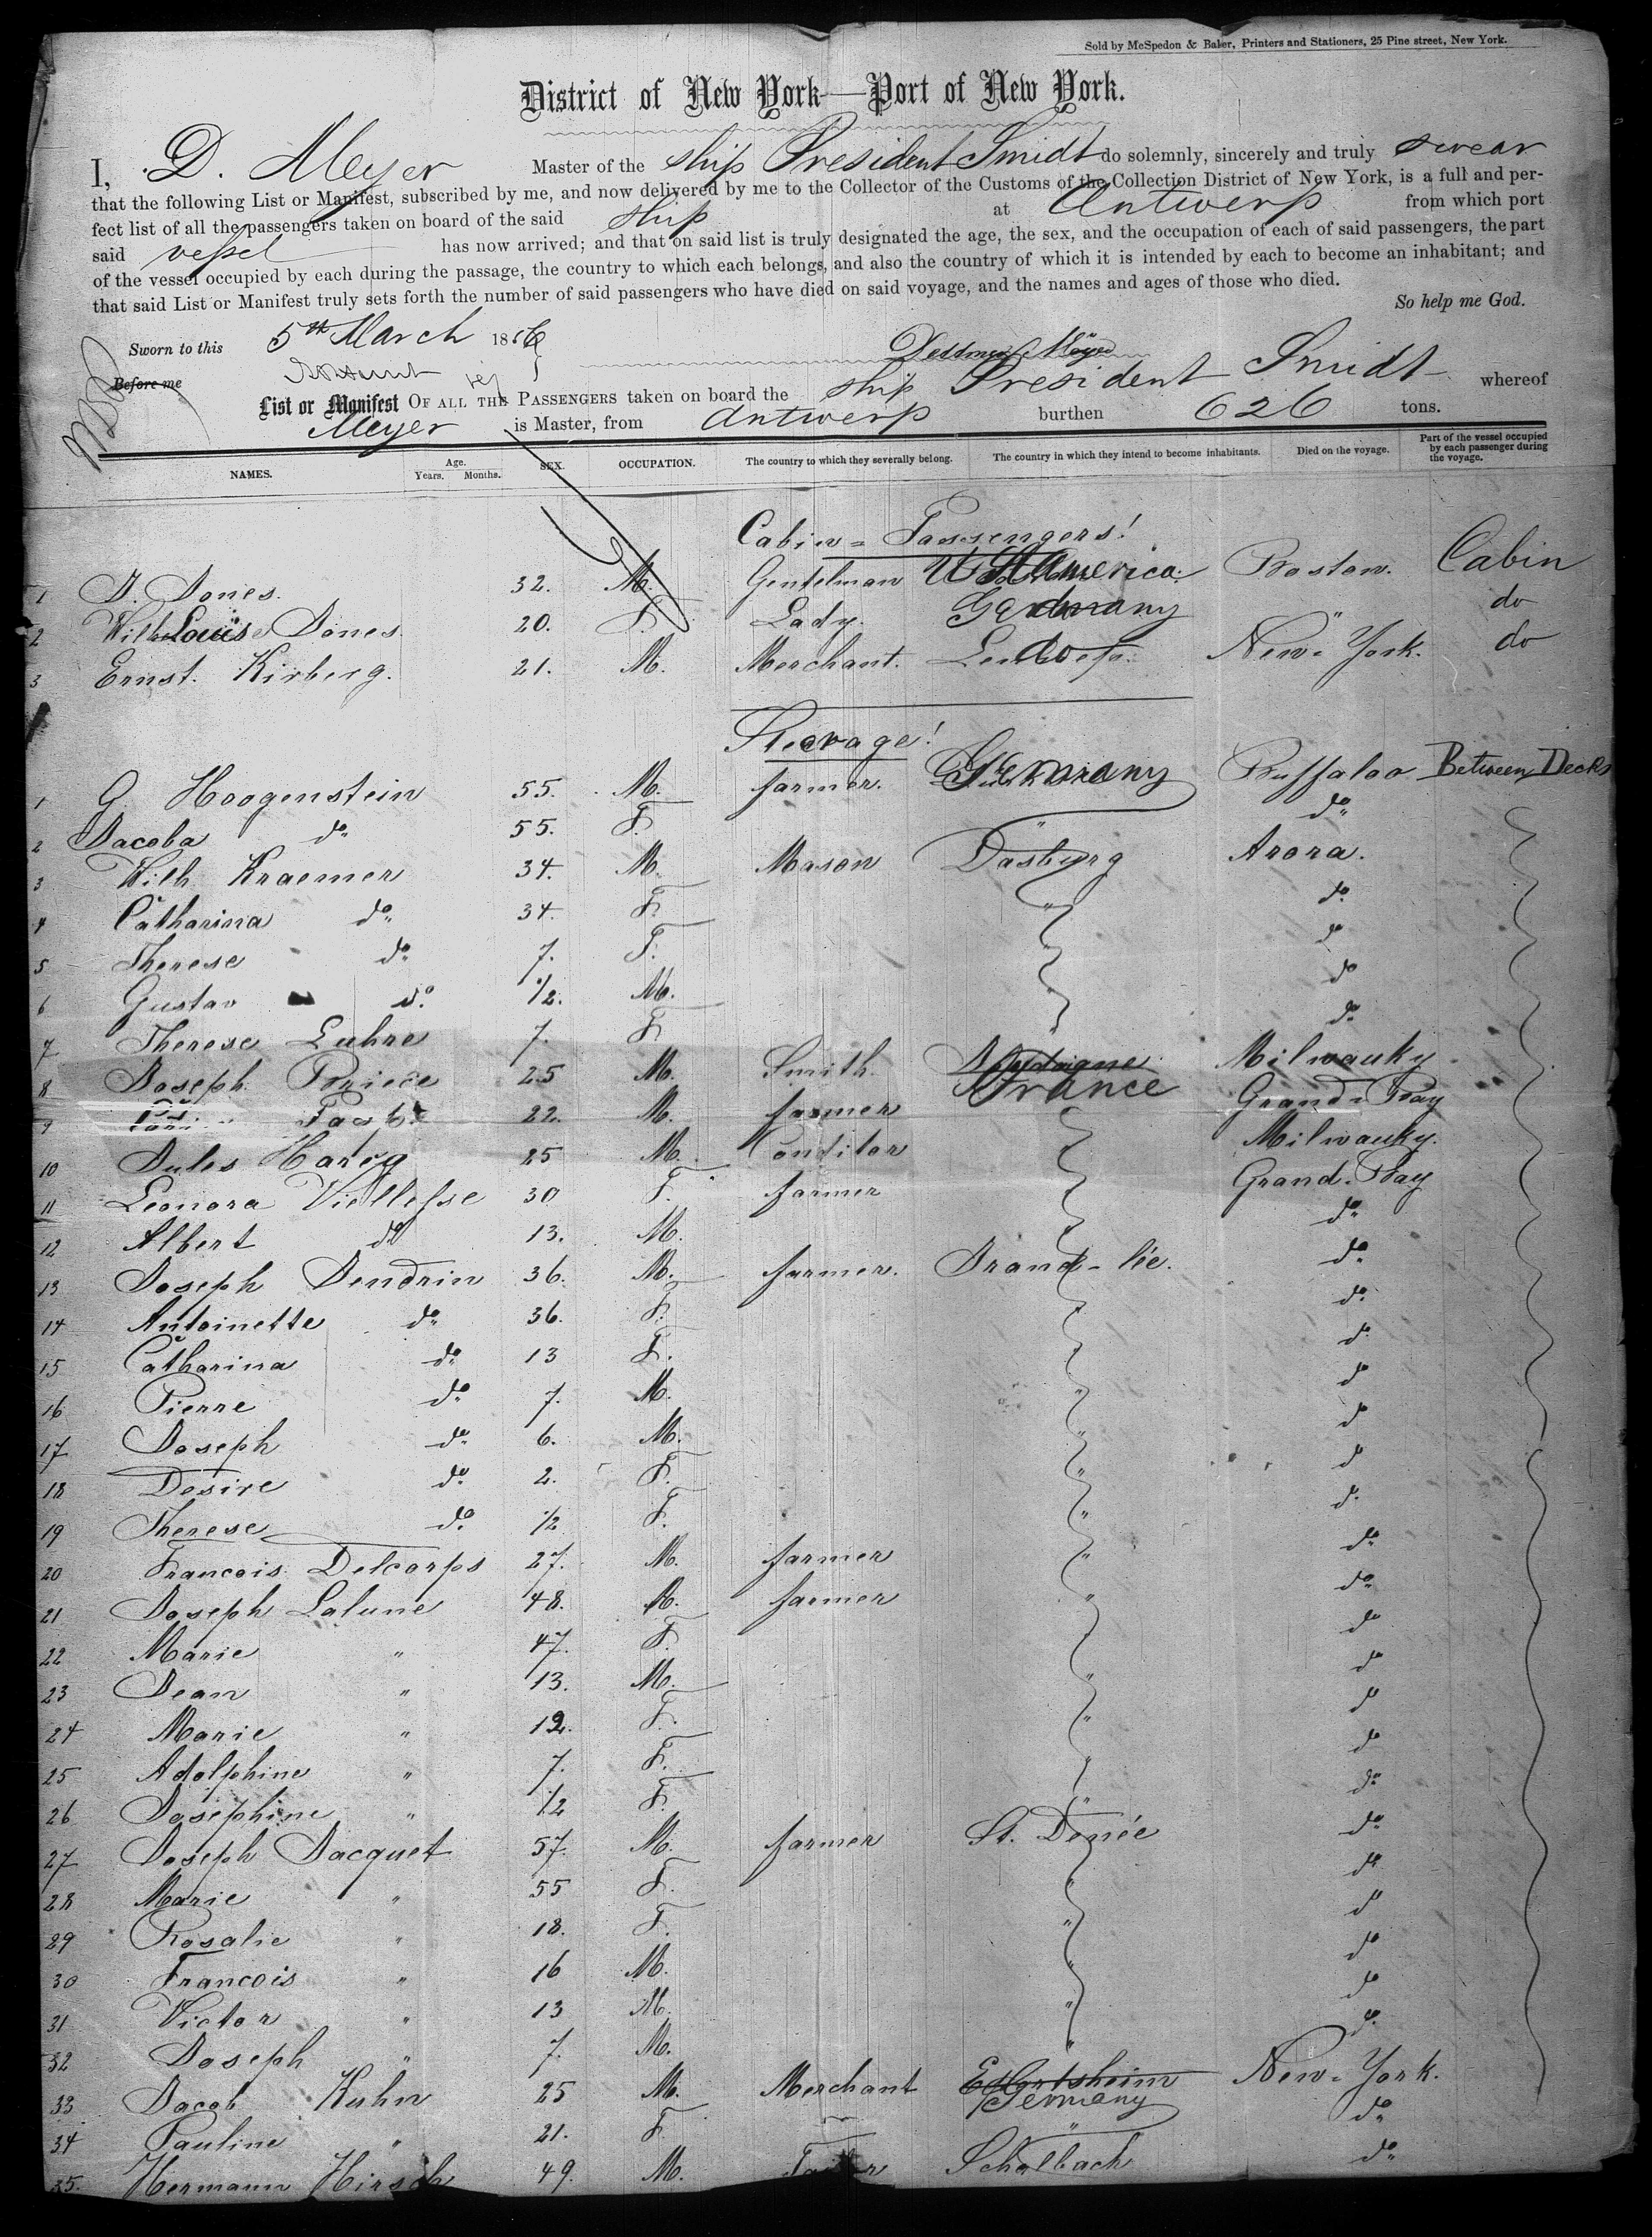 Sold by McSpedon & Baker, Printers and Stationers, 25 Pine street, New York.
District of New York—Port of New York.
I, D. Meyer Master of the ship President Smidt do solemnly, sincerely and truly swear
that the following List or Manifest, subscribed by me, and now delivered by me to the Collector of the Customs of the Collection District of New York, is a full and per-
fect list of all the passengers taken on board of the said ship at Antwerp from which port
said vessel has now arrived; and that on said list is truly designated the age, the sex, and the occupation of each of said passengers, the part
of the vessel occupied by each during the passage, the country to which each belongs, and also the country of which it is intended by each to become an inhabitant; and
that said List or Manifest truly sets forth the number of said passengers who have died on said voyage, and the names and ages of those who died.
So help me God.
Sworn to this 5th March 1856
Before me
List or Manifest OF ALL THE PASSENGERS taken on board the ship President Smidt whereof
Meyer is Master, from Antwerp burthen 626 tons.
NAMES. Age. Years. Months. SEX. OCCUPATION. The country to which they severally belong. The country in which they intend to become inhabitants. Died on the voyage. Part of the vessel occupied by each passenger during the voyage.
Cabin=Passengers!
1 J. Jones. 32. M. Gentelman U St America Boston. Cabin
2 Wilh Louise Jones. 20. F. Lady. Germany " do
3 Ernst. Kirberg. 21. M. Merchant. do New-York. do
Steerage!
1 G. Hoogenstein 55. M. farmer. Germany Buffaloo Between Decks
2 Jacoba do 55. F. " do
3 Wilh Kraemer 34. M. Mason Dasburg Arora.
4 Catharina do 34. F. " do
5 Therese do 7. F. do
6 Gustav do 1/2. M. " do
7 Therese Luhre 7. F. " do
8 Joseph 25 M. Smith France Milwauky
9 22. M. farmer Grand-Bay
10 Jules 25 M. Conditor Milwauky.
11 Leonora Viellesse 30 F. farmer Grand-Bay
12 Albert do 13. M. do
13 Joseph Jendrin 36. M. farmer. do
14 Antoinette do 36. F. do
15 Catharina do 13 F. do
16 Pierre do 7. M. " do
17 Joseph do 6. M. " do
18 Desire do 2. F. " do
19 Therese do 1/2 F. " do
20 Francois Delcorps 27. M. farmer " do
21 Joseph Lalune 48. M. farmer " do
22 Marie " 47. F. do
23 Jean " 13. M. " do
24 Marie " 12. F. " do
25 Adolphine " 7. F. " do
26 Josephine " 1/2 F. " do
27 Joseph Jacquet 57. M. farmer St. Denée do
28 Marie " 55 F. " do
29 Rosalie " 18. F. " do
30 Francois " 16 M. " do
31 Victor " 13 M. " do
32 Joseph " 7. M. " do
33 Jacob Kuhn 25 M. Merchant Germany New-York.
34 Pauline " 21. F. " do
35. Hermann Hirsch 49. M. Schalbach do